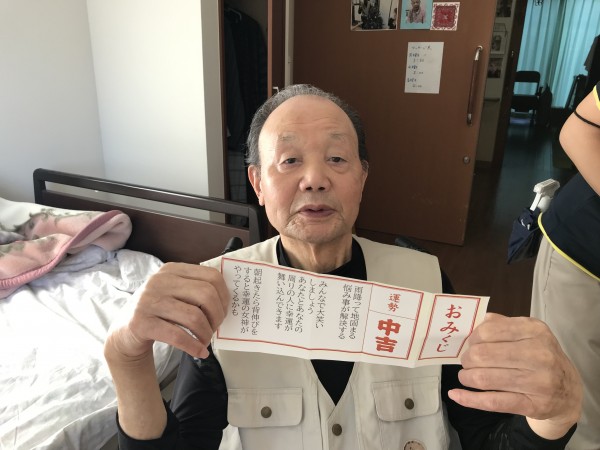 おみくじ
運勢
中吉
雨降って地固まる
悩み事が解決する
みんなで大笑い
しましょう
あなたとあなたの
周りの人に幸運が
舞い込んできます
朝起きたら背伸びを
すると幸運の女神が
やってくるかも